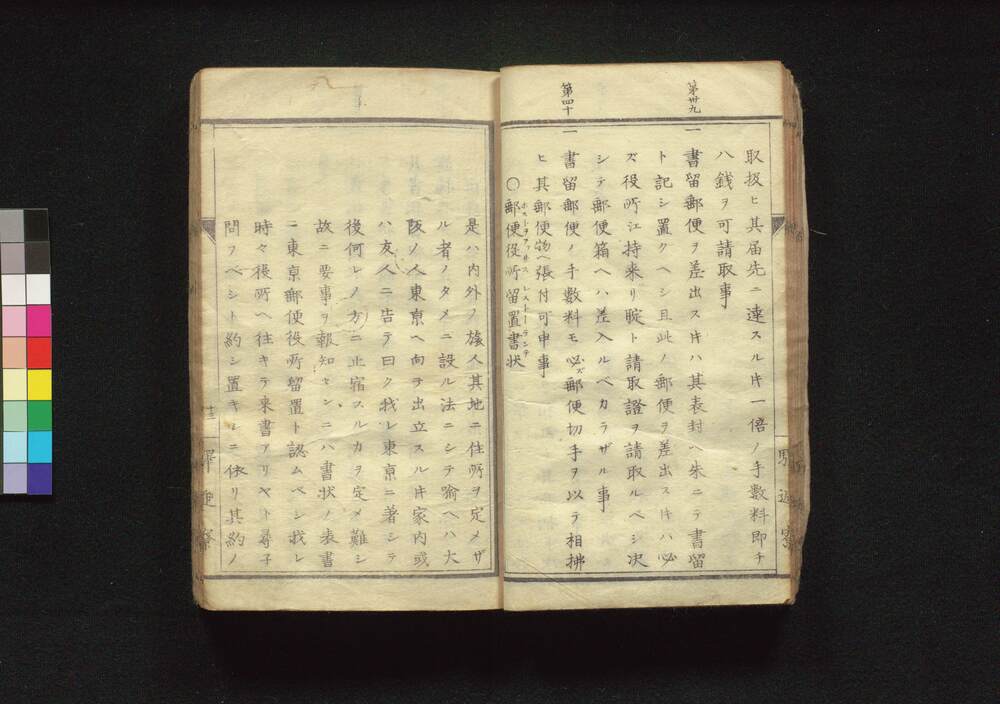 取扱ヒ其届先ニ達スル𪜈一倍ノ手數料即チ
八錢ヲ可請取事
第卅九
一 書留郵便ヲ差出ス𪜈ハ其表封ヘ朱ニテ書留
ト記シ置クヘシ且此ノ郵便ヲ差出ス𪜈ハ必
ズ役所江持来リ聢ト請取證ヲ請取ルベシ决
シテ郵便箱ヘハ差入ルベカラザル事
第四十
一 書留郵便ノ手數料モ必ズ郵便切手ヲ以テ相拂
ヒ其郵便物ヘ張付可申事
○郵便役所留置書状
ポストヲファイス レストーランテ
驛逓寮
是ハ内外ノ旅人其地ニ住所ヲ定メザ
ル者ノタメニ設ル法ニシテ喩ヘハ大
阪ノ人東京ヘ向ヲ出立スル𪜈家内或
ハ友人ニ告テ曰ク我レ東京ニ著シテ
後何レノ方ニ止宿スルカヲ定メ難シ
故ニ要事ヲ報知センニハ書状ノ表書
ニ東京郵便役所留置ト認ムベシ我レ
時々役所ヘ往キテ来書アリヤト尋子
問フベシト約シ置キシニ依リ其約ノ
十三
驛逓寮